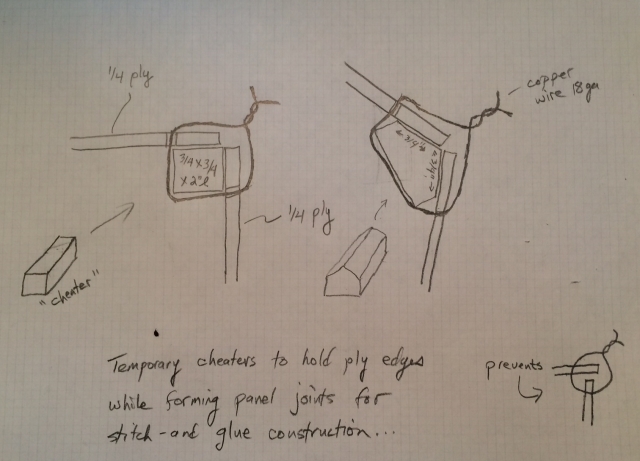 1/4 ply
copper
wire 18ga
3/4 x 3/4
x 2" l
3/4"
3/4"
1/4 ply
"cheater"
Temporary cheaters to hold ply edges
while forming panel joints for
stitch-and glue construction...
prevents